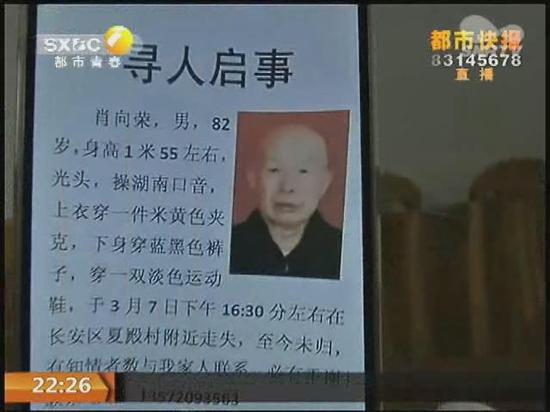 SXBC
都市青春
都市快报
83145678
直播
寻人启事
肖向荣，男，82
岁，身高1米55左右，
光头，操湖南口音，
上衣穿一件米黄色夹
克，下身穿蓝黑色裤
子，穿一双淡色运动
鞋，于3月7日下午16:30分左右在
长安区夏殿村附近走失，至今未归，
有知情者数与我家人联系，必有重谢！
13572093563
22:26